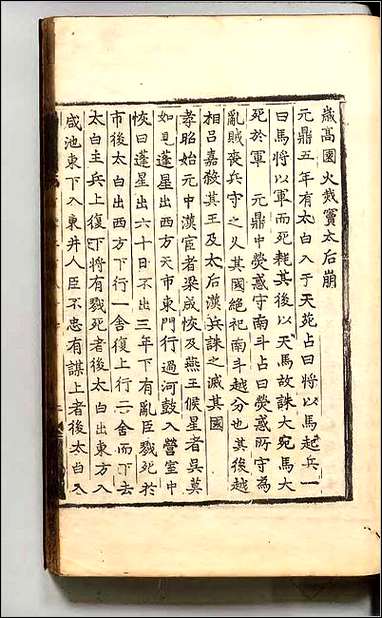 歲高國火災竇太后崩
元鼎五年有太白入于天苑占曰將以馬起兵一
曰馬將以軍而死耗其後以天馬故誅大宛馬大
死於軍　元鼎中熒惑守南斗占曰熒惑所守為
亂賊喪兵守之久其國絕祀南斗越分也其後越
相呂嘉殺其王及太后漢兵誅之滅其國
孝昭始元中漢宦者梁成恢及燕王候星者吳莫
如見蓬星出西方天市東門行過河鼓入營室中
恢曰蓬星出六十日不出三年下有亂臣戮死於
市後太白出西方下行一舍復上行二舍而下去
太白主兵上復下將有戮死者後太白出東方入
咸池東下入東井人臣不忠有謀上者後太白入